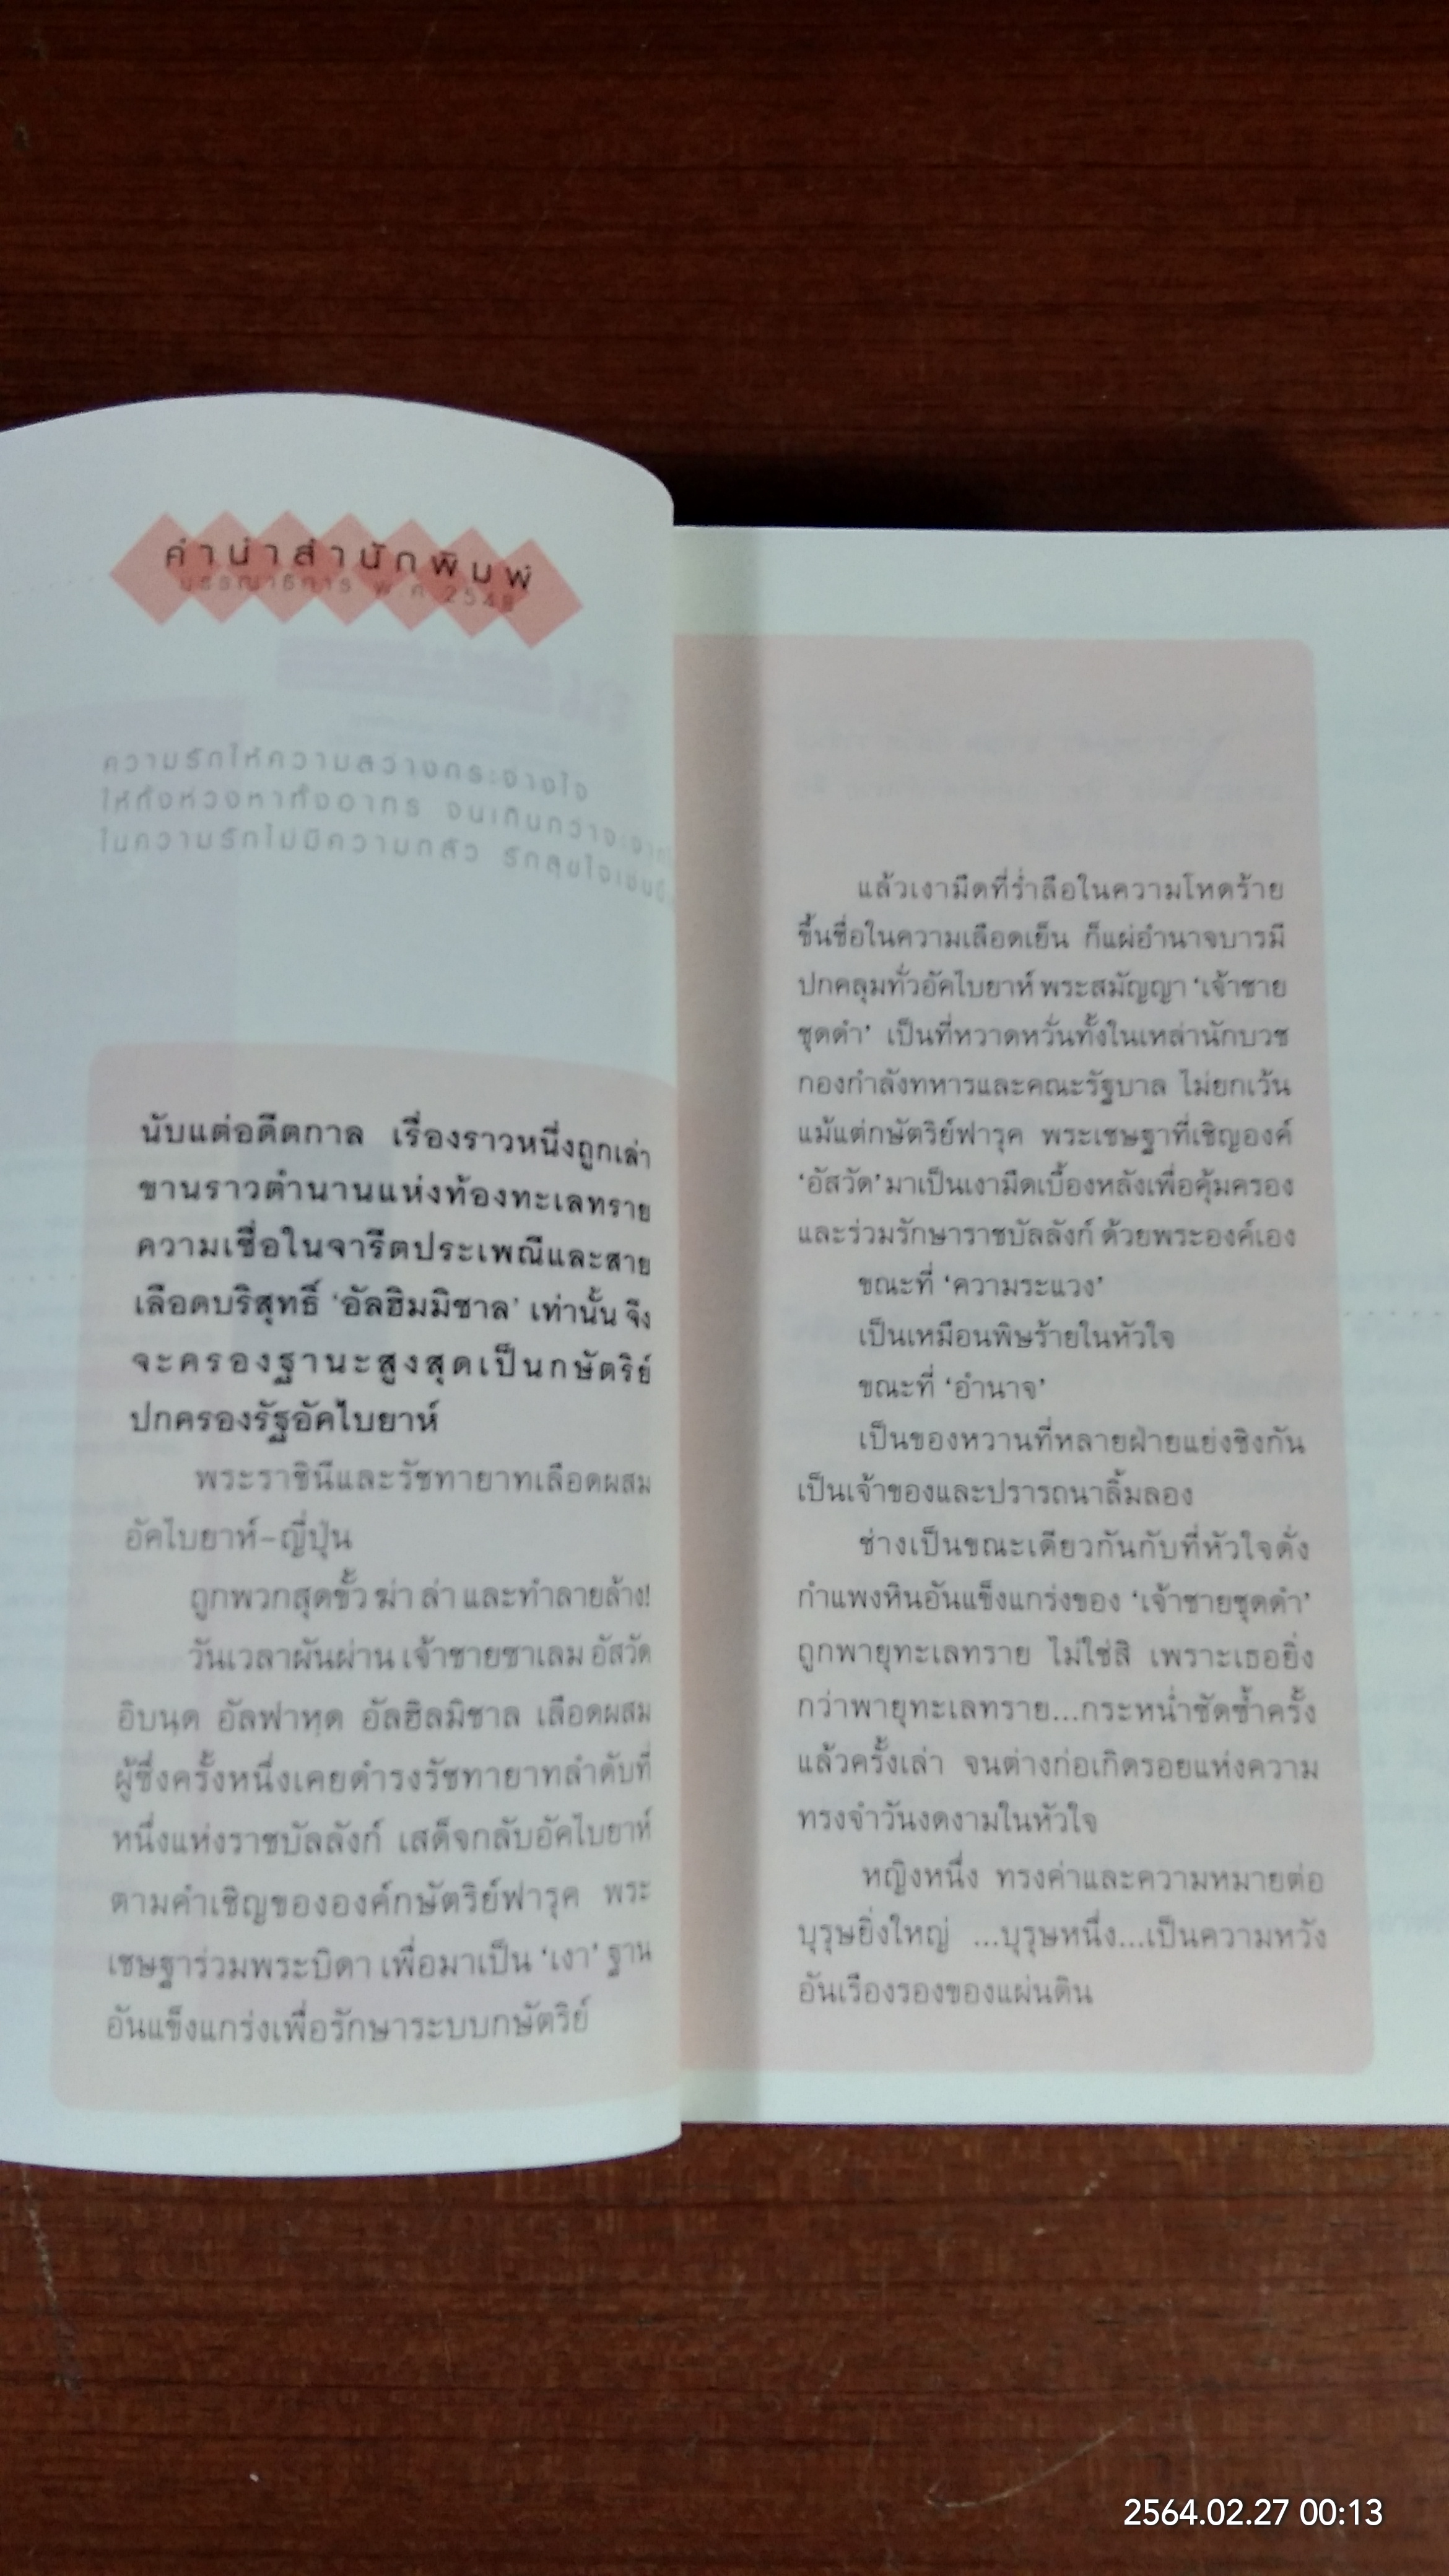 คำนำสำนักพิมพ์
บรรณาธิการ พ ศ 2548
ความรักให้ความสว่างกระจ่างใจ
ให้ทั้งห่วงหาทั้งอาทร จนเกินกว่าจะ
ในความรักไม่มีความกลัว รักสุขใจ
นับแต่อดีตกาล เรื่องราวหนึ่งถูกเล่า
ขานราวตำนานแห่งท้องทะเลทราย
ความเชื่อในจารีตประเพณีและสาย
เลือดบริสุทธิ์ ‘อัลฮิมมิชาล’ เท่านั้น จึง
จะครองฐานะสูงสุดเป็นกษัตริย์
ปกครองรัฐอัคไบยาห์
พระราชินีและรัชทายาทเลือดผสม
อัคไบยาห์-ญี่ปุ่น
ถูกพวกสุดขั้ว ฆ่า ล่า และทำลายล้าง!
วันเวลาผันผ่าน เจ้าชายซาเลม อัสวัด
อิบนุด อัลฟาหุด อัลฮิลมิชาล เลือดผสม
ผู้ซึ่งครั้งหนึ่งเคยดำรงรัชทายาทลำดับที่
หนึ่งแห่งราชบัลลังก์ เสด็จกลับอัคไบยาห์
ตามคำเชิญขององค์กษัตริย์ฟารุค พระ
เชษฐาร่วมพระบิดา เพื่อมาเป็น ‘เงา’ ฐาน
อันแข็งแกร่งเพื่อรักษาระบบกษัตริย์
แล้วเงามืดที่ร่ำลือในความโหดร้าย
ขึ้นชื่อในความเลือดเย็น ก็แผ่อำนาจบารมี
ปกคลุมทั่วอัคไบยาห์ พระสมัญญา ‘เจ้าชาย
ชุดดำ’ เป็นที่หวาดหวั่นทั้งในเหล่านักบวช
กองกำลังทหารและคณะรัฐบาล ไม่ยกเว้น
แม้แต่กษัตริย์ฟารุค พระเชษฐาที่เชิญองค์
‘อัสวัด’ มาเป็นเงามืดเบื้องหลังเพื่อคุ้มครอง
และร่วมรักษาราชบัลลังก์ ด้วยพระองค์เอง
ขณะที่ ‘ความระแวง’
เป็นเหมือนพิษร้ายในหัวใจ
ขณะที่ ‘อำนาจ’
เป็นของหวานที่หลายฝ่ายแย่งชิงกัน
เป็นเจ้าของและปรารถนาลิ้มลอง
ช่างเป็นขณะเดียวกันกับที่หัวใจดั่ง
กำแพงหินอันแข็งแกร่งของ ‘เจ้าชายชุดดำ’
ถูกพายุทะเลทราย ไม่ใช่สิ เพราะเธอยิ่ง
กว่าพายุทะเลทราย...กระหน่ำซัดซ้ำครั้ง
แล้วครั้งเล่า จนต่างก่อเกิดรอยแห่งความ
ทรงจำวันงดงามในหัวใจ
หญิงหนึ่ง ทรงค่าและความหมายต่อ
บุรุษยิ่งใหญ่ ...บุรุษหนึ่ง...เป็นความหวัง
อันเรืองรองของแผ่นดิน
2564.02.27 00:13